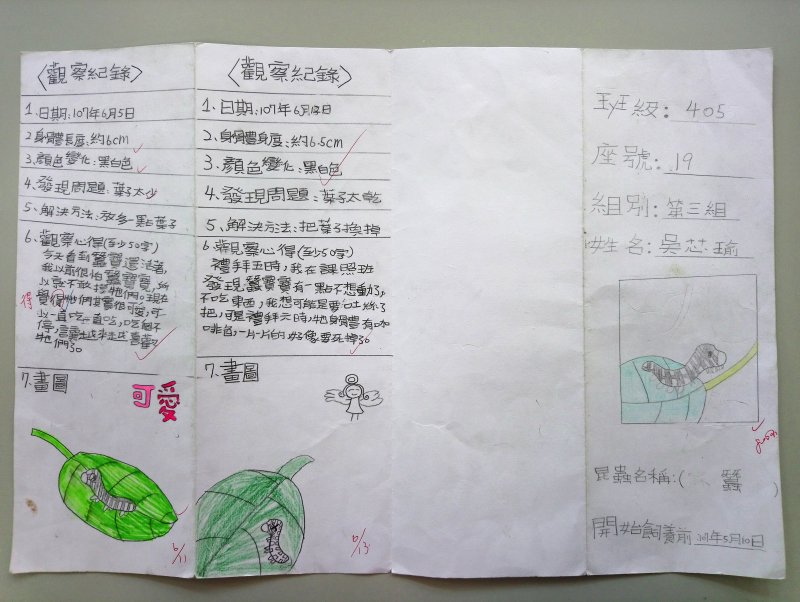 〈觀察紀錄〉
1、日期:107年6月5日
2身體長度:約6cm
3、顏色變化:黑白色
4、發現問題:葉子太少
5、解決方法:放多一點葉子
6、觀察心得(至少50字)
今天看到蠶寶還活著,
我以前很怕蠶寶寶,所
以就不敢接牠們,現在
覺得他們其實很可愛,可
以一直吃一直吃,吃個不
停,
牠們了。
得
7、畫圖
可愛
6/11
〈觀察紀錄〉
1、日期:107年6月12日
2、身體身度:約6.5cm
3、顏色變化:黑白色
4、發現問題:葉子太乾
5、解決方法:把葉子換掉
6、觀察心得(至少50字)
禮拜五時,我在課照班
發現蠶寶寶有一點不想動了,
不吃東西,我想可能是要吐絲了
把,可是禮拜六時,牠身體有咖
啡色,一片一片的好像要死掉了。
7、畫圖
6/13
班級:405
座號:19
組別:第三組
姓名:吳芯瑜
昆蟲名稱:( 蠶 )
開始飼養前 107年5月10日